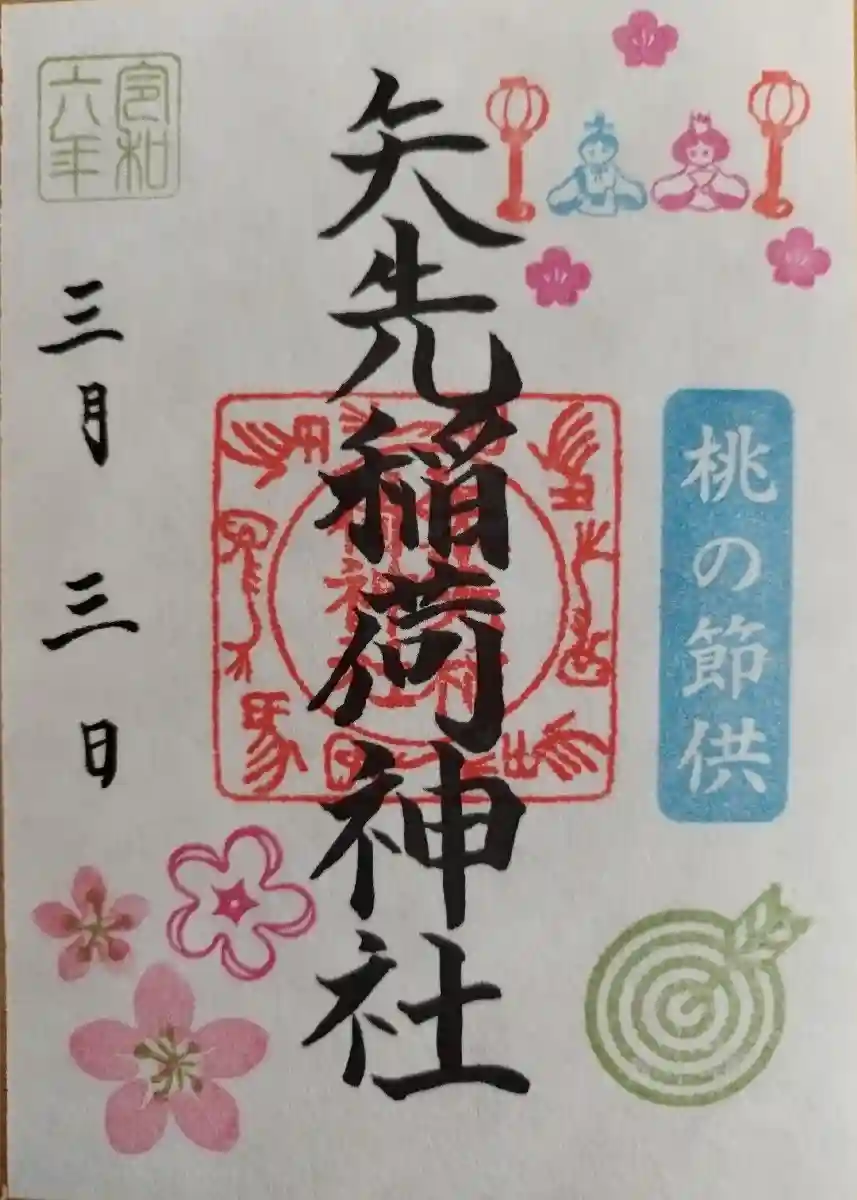 桃の節供
矢先稲荷神社
令和
六年
三月三日